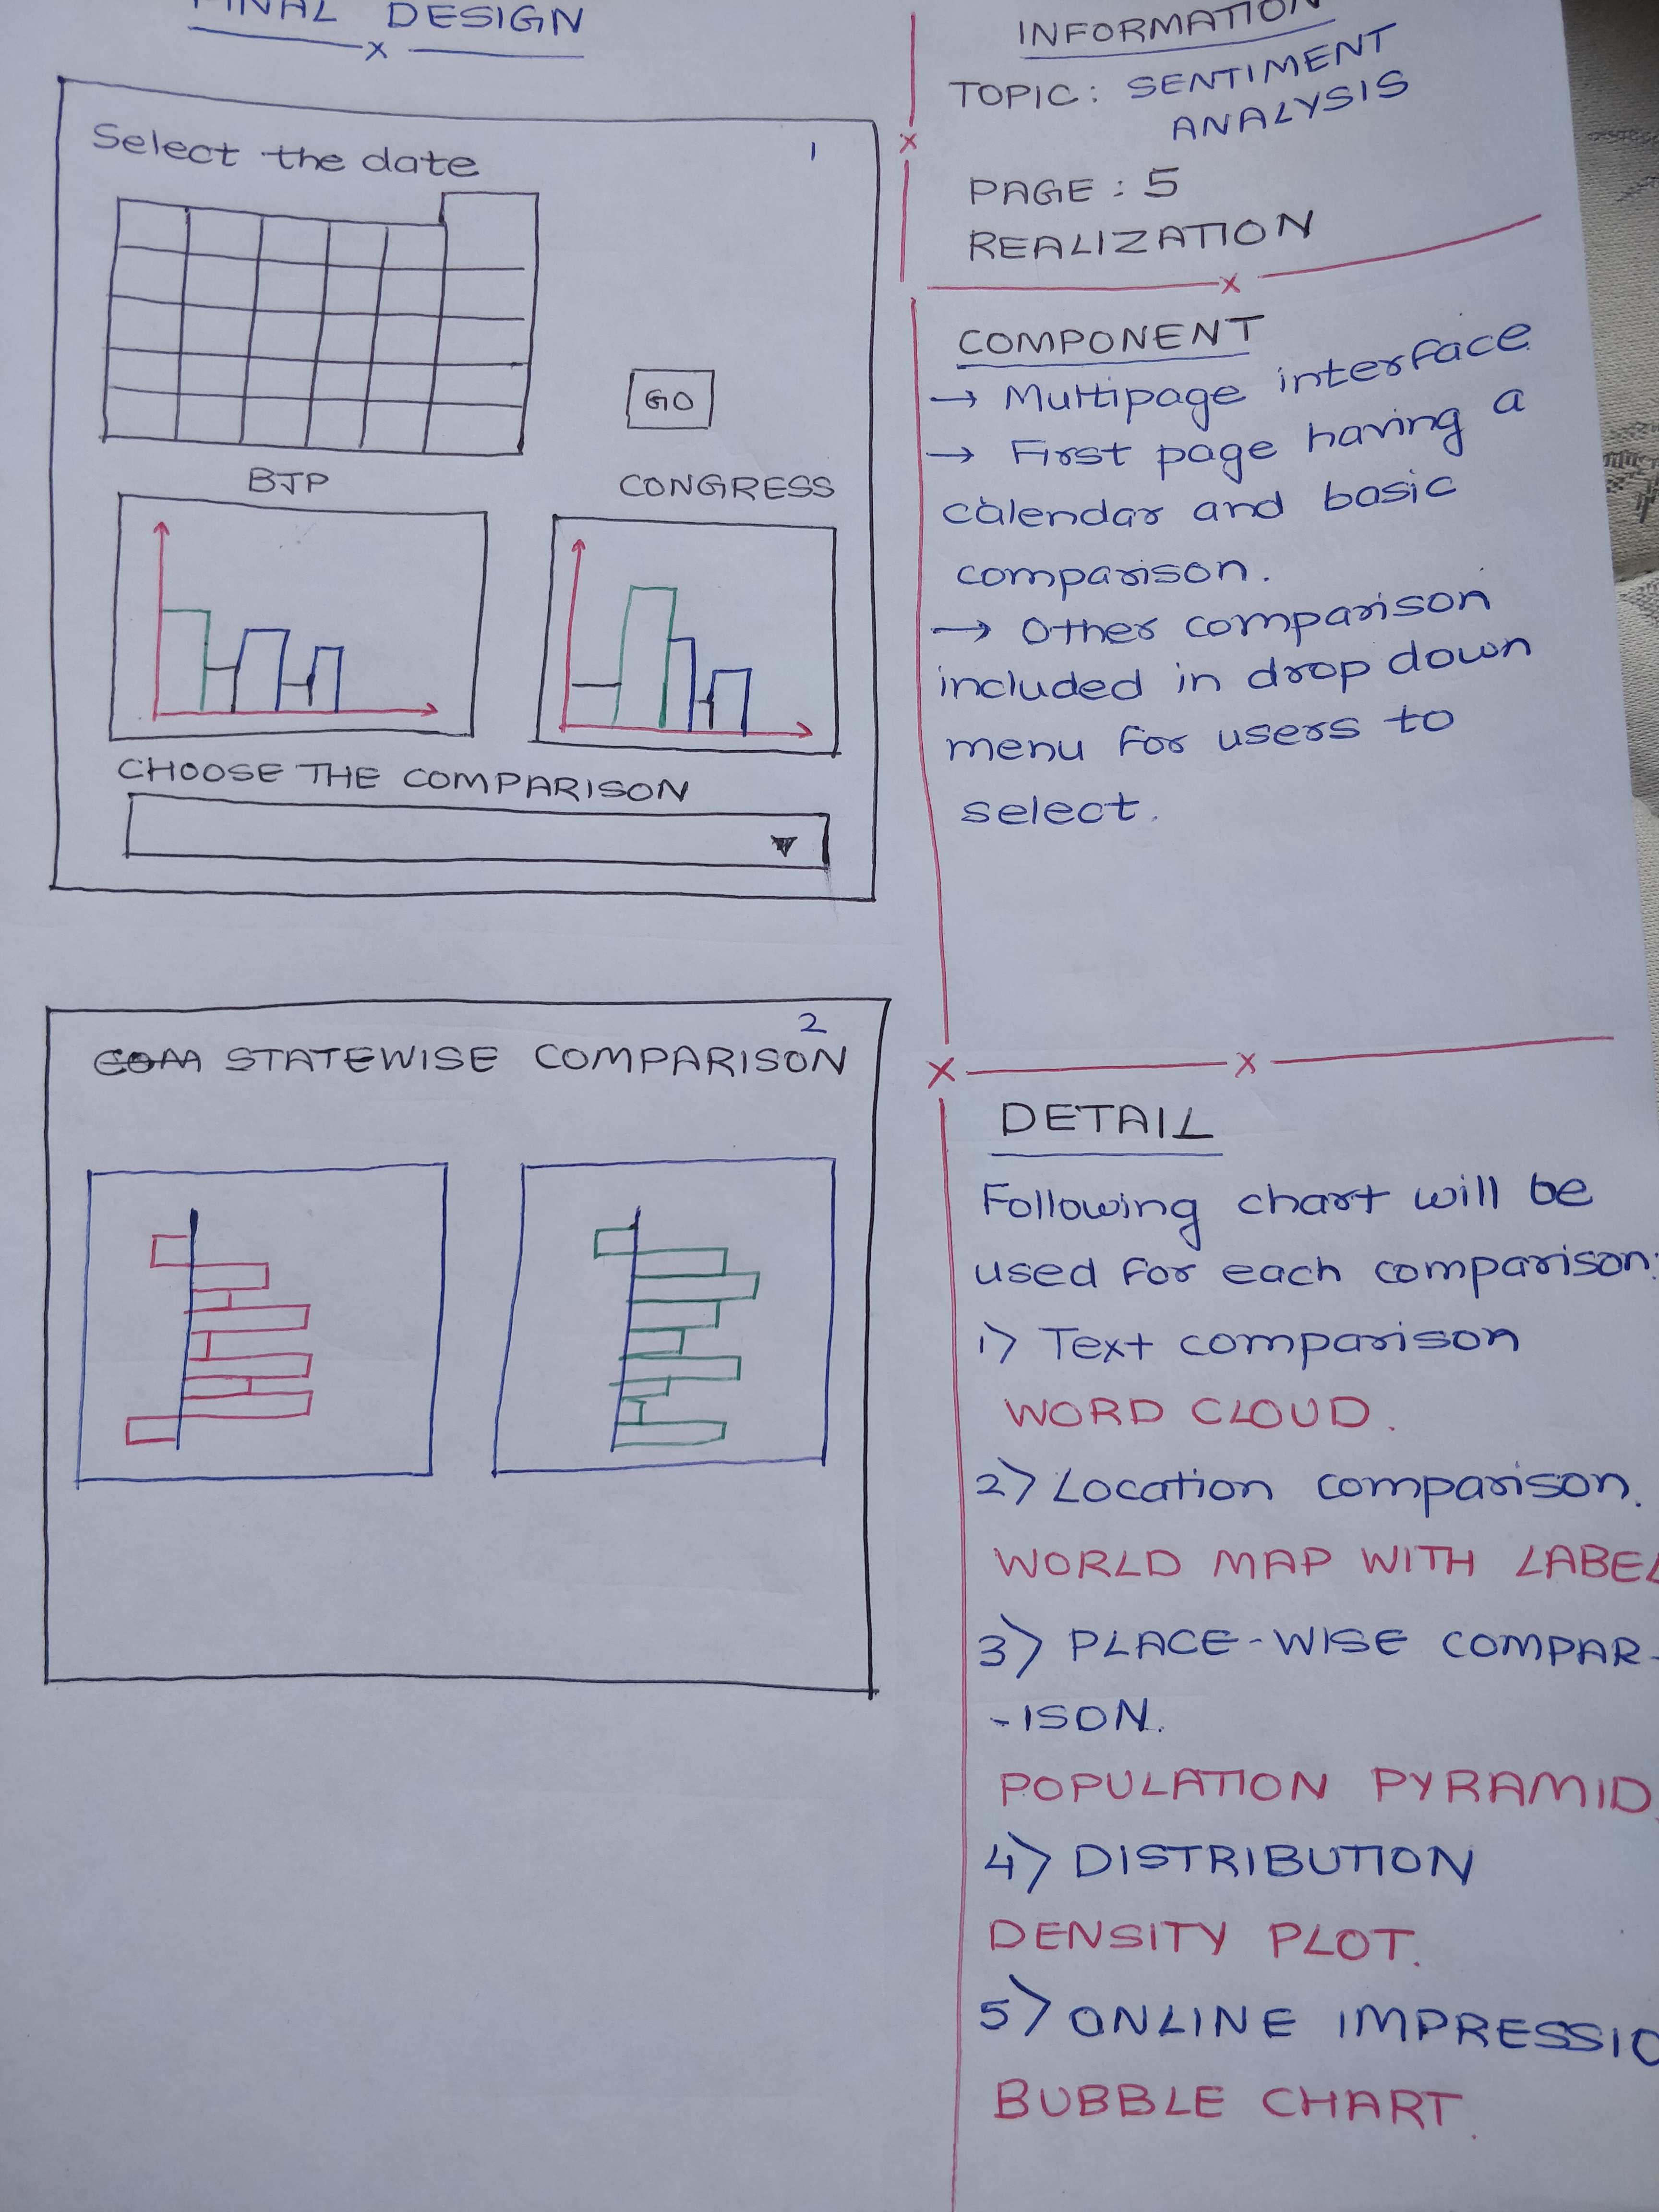 FINAL DESIGN
x
Select the date
1
GO
BJP
CONGRESS
CHOOSE THE COMPARISON
2
COM STATEWISE COMPARISON
INFORMATION
TOPIC: SENTIMENT
ANALYSIS
PAGE: 5
REALIZATION
COMPONENT
→ Multipage interface
→ First page having a
calendar and basic
comparison.
→ Other comparison
included in drop down
menu for users to
select.
DETAIL
Following chart will be
used for each comparison:
1> Text comparison
WORD CLOUD.
2> Location comparison.
WORLD MAP WITH LABEL
3> PLACE-WISE COMPAR-
-ISON.
POPULATION PYRAMID.
4> DISTRIBUTION
DENSITY PLOT.
5> ONLINE IMPRESSIO
BUBBLE CHART.